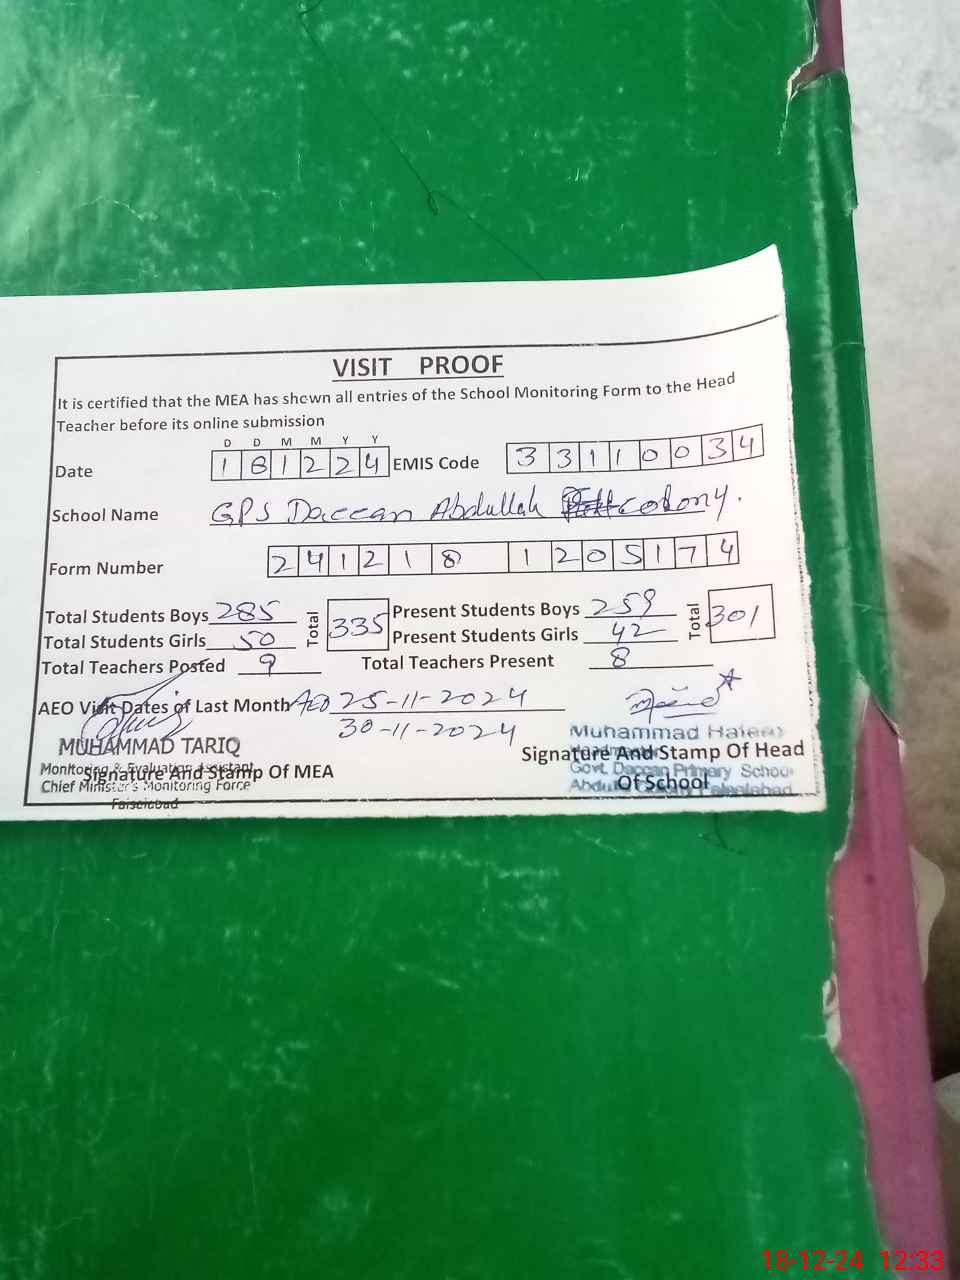 VISIT PROOF
It is certified that the MEA has shown all entries of the School Monitoring Form to the Head
Teacher before its online submission
D D M M Y Y
Date 1 8 1 2 2 4 EMIS Code 3 3 1 1 0 0 3 4
School Name GPS Daccan Abdullah colony.
Form Number 2 4 1 2 1 8 1 2 0 5 1 7 4
Total Students Boys 285 Total 335 Present Students Boys 259 Total 301
Total Students Girls 50 Present Students Girls 42
Total Teachers Posted 9 Total Teachers Present 8
AEO Visit Dates of Last Month AEO 25-11-2024
30-11-2024
MUHAMMAD TARIQ
Monitoring & Evaluation Assistant
Signature And Stamp Of MEA
Chief Minister's Monitoring Force
Faisalabad
Muhammad
Signature And Stamp Of Head
Govt. Daccan Primary School
Of School
Faisalabad
18-12-24 12:33